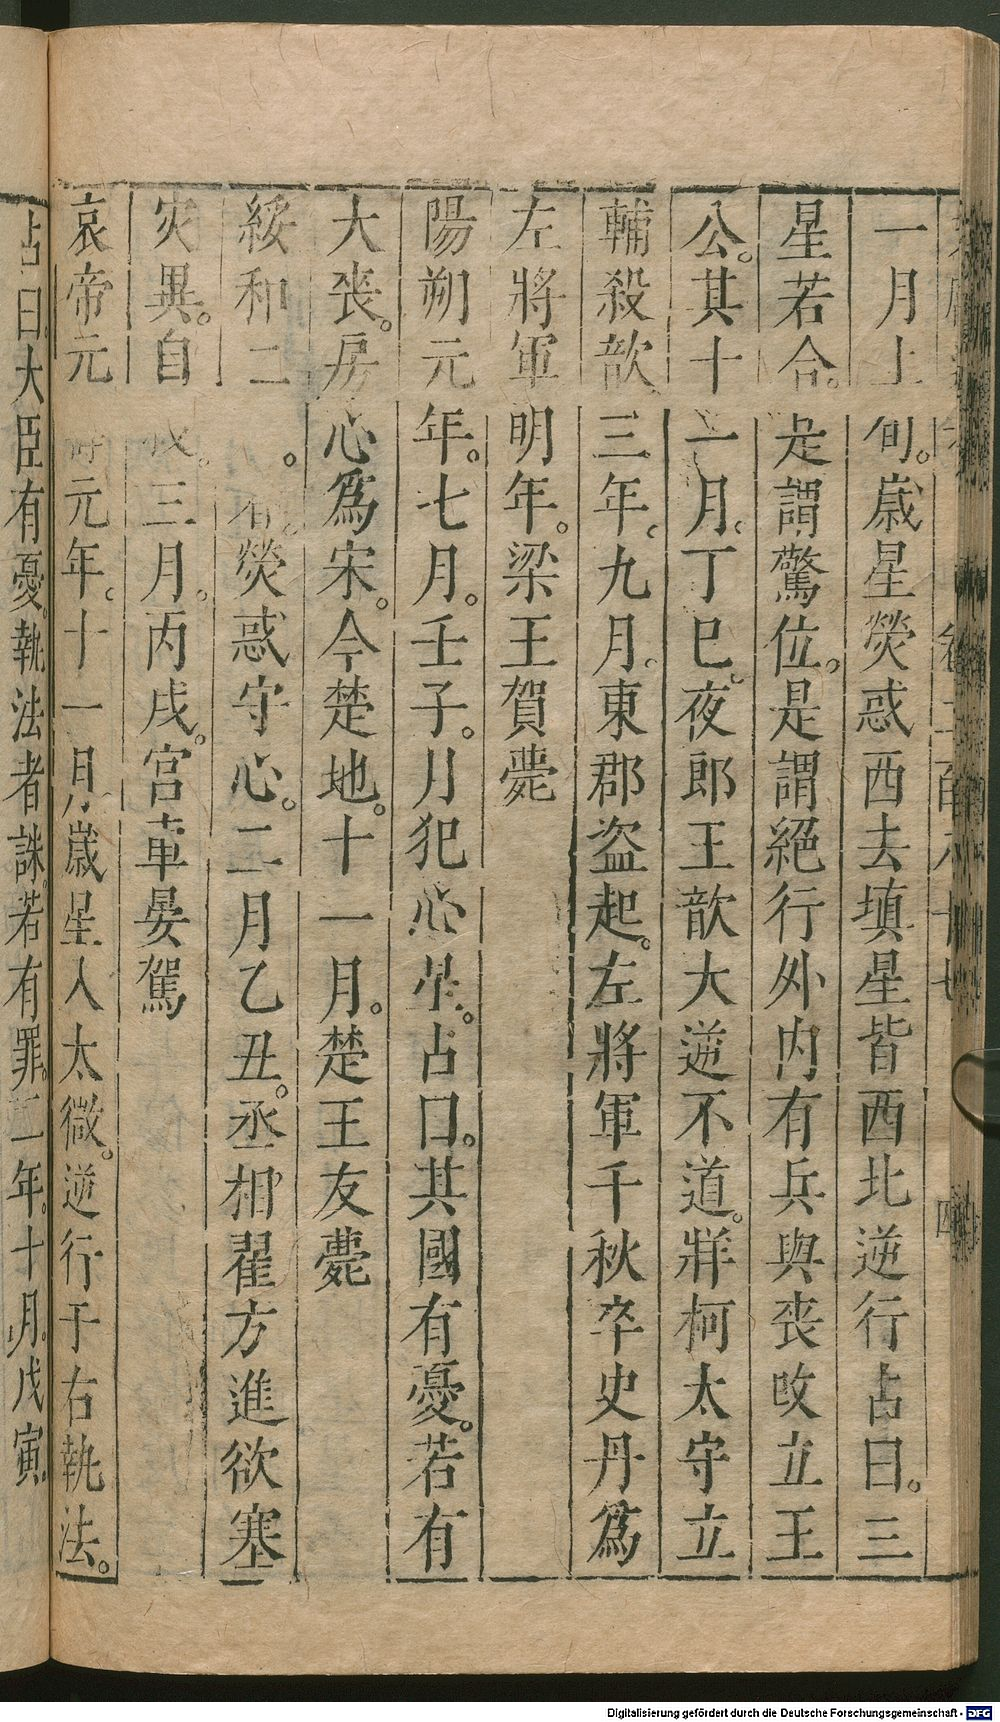 一月上旬。歳星熒惑西去填星皆西北逆行占曰。三
星若合。是謂驚位。是謂絕行外内有兵與丧改立王
公。其十一月。丁巳。夜郎王歆大逆不道。牂柯太守立
輔殺歆。三年。九月。東郡盗起。左將軍千秋卒史丹爲
左將軍明年。梁王賀薨
陽朔元年。七月。壬子。月犯心星。占曰。其國有憂。若有
大丧。房心爲宋。今楚地。十一月。楚王友薨
綏和二 熒惑守心。二月乙丑。丞相翟方進欲塞
灾異。自 三月。丙戌。宮車晏駕
哀帝元 元年。十一月歳星入太微。逆行于右執法。
占曰。大臣有憂。執法者誅。若有罪。二年。十月。戊寅。
四
Digitalisierung gefördert durch die Deutsche Forschungsgemeinschaft - DFG